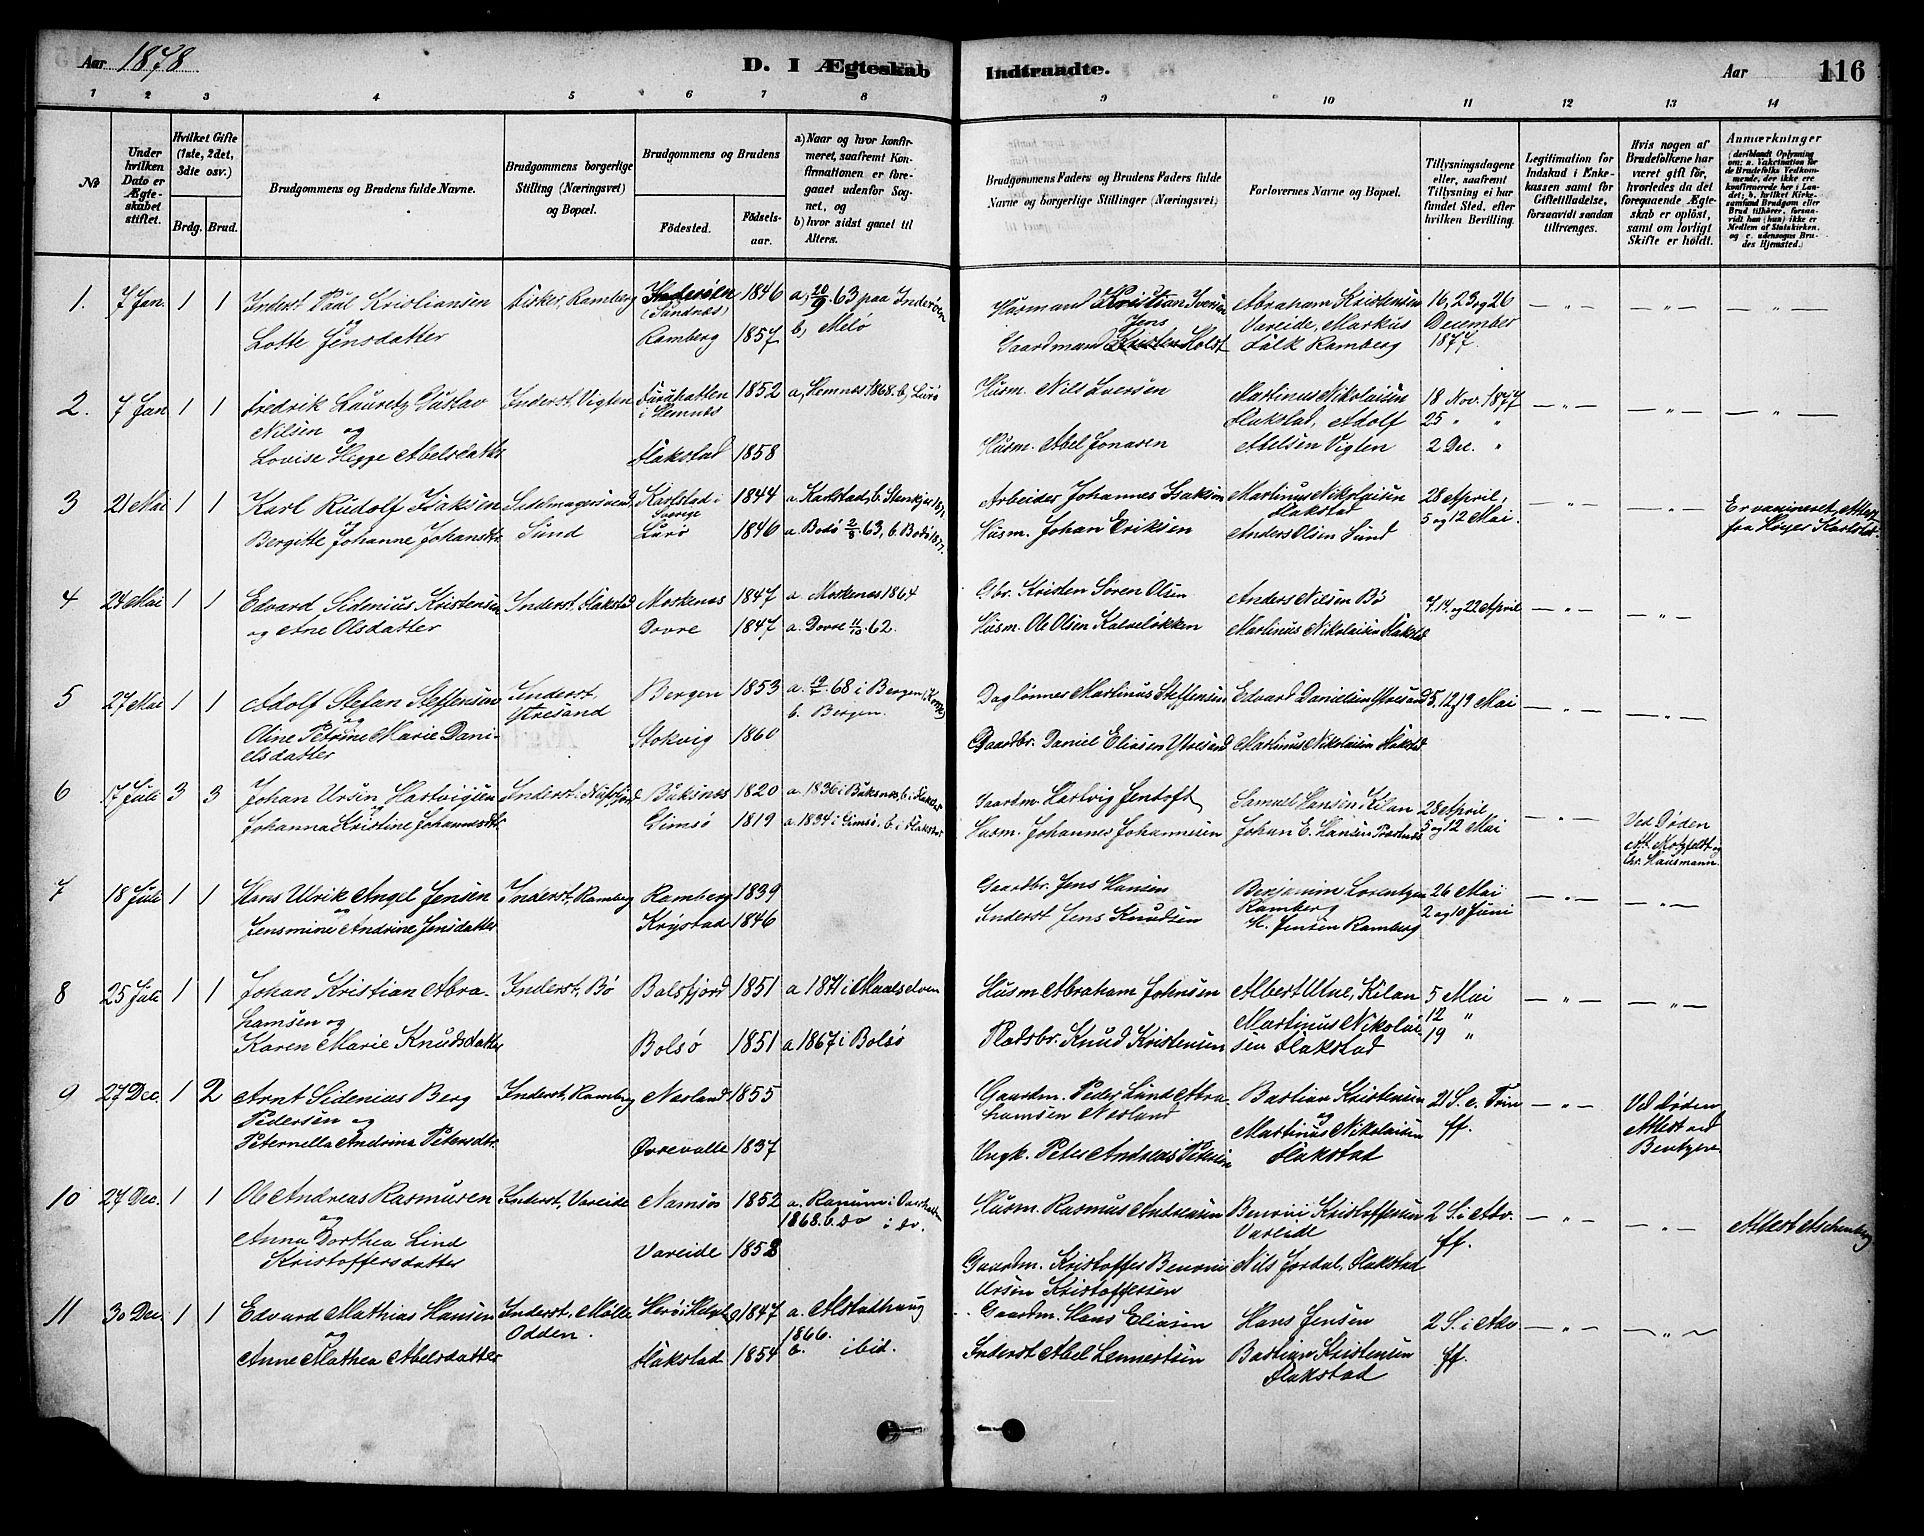 Aar 1878
D. I Ægteskab Indtraadte.
Aar 116
1 2 3 4 5 6 7 8 9 10 11 12 13 14
No
Under hvilken Dato er Ægteskabet stiftet.
Hvilket Gifte (1ste, 2det, 3die osv.)
Brdg. Brud.
Brudgommens og Brudens fulde Navne.
Brudgommens borgerlige Stilling (Næringsvei) og Bopæl.
Brudgommens og Brudens
Fødested. Fødselsaar.
a) Naar og hvor konfirmeret, saafremt Konfirmationen er foregaaet udenfor Sognet, og
b) hvor sidst gaaet til Alters.
Brudgommens Faders og Brudens Faders fulde Navne og borgerlige Stillinger (Næringsvei)
Forlovernes Navne og Bopæl.
Tillysningsdagene eller, saafremt Tillysning ei har fundet Sted, efter hvilken Bevilling.
Legitimation for Indskud i Enkekassen samt for Giftetilladelse, forsaavidt saadan tiltrænges.
Hvis nogen af Brudefolkene har været gift før, hvorledes da det foregaaende Ægteskab er opløst, samt om lovligt Skifte er holdt.
Anmærkninger
1. 7 Jan. 1 1 Inderst Paul Kristiansen og Lotte Jensdatter
Fisker, Ramberg
Inderøen (Sandnæs) 1846
Ramberg 1857
a, 20/9 63 paa Inderøen
b, Melø
Husmand Kristian Iversen
Gaardmand Jens Holst
Abraham Kristensen Vareide, Markus Falk Ramberg
16, 23 og 26 December 1877.
— " — — " — — " —
2. 7 Jan 1 1 Fredrik Lauretz Gustav Nilsen og Lovise Hegge Abelsdatter
Inderst, Vigten
i Hemnes 1852
Flakstad 1858
a, Hemnes 1868. b, Lurø
Husm. Nils Iversen
Husm. Abel Jonasen
Martinus Nikolaisen Flakstad, Adolf Abelsen Vigten
18 Nov. 1877
25 " "
2 Dec. "
— " — — " — — " —
3 21 Mai 1 1 Karl Rudolf Isaksen
Bergitte Johanne Johansdtr.
Sund
Karlstad i Sverige 1844
Lurø 1846
a. Karlstad, b. Stenkjær 1877.
a. Bodø 2/8 63, b. Bodø 1877.
Arbeider Johannes Isaksen
Husm. Johan Eriksen
Martinus Nikolaisen Flakstad
Anders Olsen Sund
28 April, 5 og 12 Mai.
— " — — " —
Er vaxineret, Attest fra Karlstad.
4 24 Mai 1 1 Edvard Sidenius Kristensen og Ane Olsdatter
Inderst, Flakstad
Moskenæs 1847
Dovre 1847
a. Moskenæs 1864
a. Dovre 11/10 62.
Gbr. Kristen Sören Olsen
Husm. Ole Olsen Kalveløkken
Anders Nilsen Bö
Martinus Nikolaisen Flakstad
7. 14. og 22 April
— " — — " —
5 27 Mai 1 1 Adolf Stefan Steffensen og Aline Petrine Marie Danielsdatter
Inderst. Ytresand
Bergen 1853
Stokvig 1860
68 i Bergen
b. Bergen.
Daglønner Martinus Steffensen
Gaardbr. Daniel Eliasen Ytresand
Edvard Danielsen Ytresand
Martinus Nikolaisen Flakstad
5, 12 og 19 Mai
— " — — " —
6 17 Juli 3 3 Johan Ursin Hartvigsen og
Johanna Kristine Johannesdtr.
Inderst. Nufsfjord
Buksnæs 1820
Gimsø 1819
a. 1836 i Buksnæs, b. i Flakstad
a. 1834 i Gimsø. b. i Flakstad
Gaardm. Hartvig Jentoft
Husm. Johannes Johannesen
Samuel Hansen Kilan
Johan E. Hansen
28 April
5 og 12 Mai
— " —
Ved Døden
Att. Motzfeldt og Hausmann.
7 18 Juli 1 1 Hans Ulrik Angel Jensen og
Jensmine Andrine Jensdatter
Inderst, Ramberg
Ramberg 1839
Krystad 1846
Gaardbr. Jens Hansen
Inderst Jens Knudsen
Benjamin Lorentzen Ramberg
H. Jensen Ramberg
26 Mai
2 og 10 Juni
— " — — " —
8 25 Juli 1 1 Johan Kristian Abrahamsen og
Karen Marie Knudsdatter
Inderst, Bø
Balsfjord 1851
Bolsø 1851
a 1871 i Maalselven
a 1867 i Bolsø
Husm Abraham Johnsen
Pladsbr. Knud Kristensen
Albert Utne, Kilan
Martinus Nikolaisen Flakstad
5 Mai
12 "
19 "
— " — — " —
9 27 Dec. 1 2 Arnt Sidenius Berg Pedersen og
Peternella Andrina Petersdtr.
Inderst, Ramberg
Nesland 1855
Ørrevalle 1837
Gaardm. Peder Lund Abrahamsen Nesland
Ungk. Peter Andreas Petersen
Bastian Kristensen og
Martinus Nikolaisen Flakstad
21 S. e. Trin ff.
— " —
Ved Døden
Attest ved Bentzen
10 27 Dec. 1 1 Ole Andreas Rasmussen og
Anna Dorthea Lind Kristoffersdatter
Inderst, Vareide
Namsos 1852
Vareide 1858
a. Ranum i Overhallen 1868. b. do i do.
Husm. Rasmus Andreasen
Gaardm. Kristoffer Benoni Ursin Kristoffersen
Benoni Kristoffersen Vareide
Nils Jordal, Flakstad
2 S. i Adv. ff.
— " — — " —
Attest Aschenberg
11 30 Dec. 1 1 Edvard Mathias Hansen og
Anne Mathea Abelsdatter
Inderst, Mølle Odden.
Herø i Helgel. 1847
Flakstad 1854
a. Alstadhaug 1866.
b. ibid.
Gaardm. Hans Eliasen
Inderst Abel Lennertsen
Hans Jensen
Bastian Kristensen Flakstad
2 S. i Adv ff.
— " — — " —